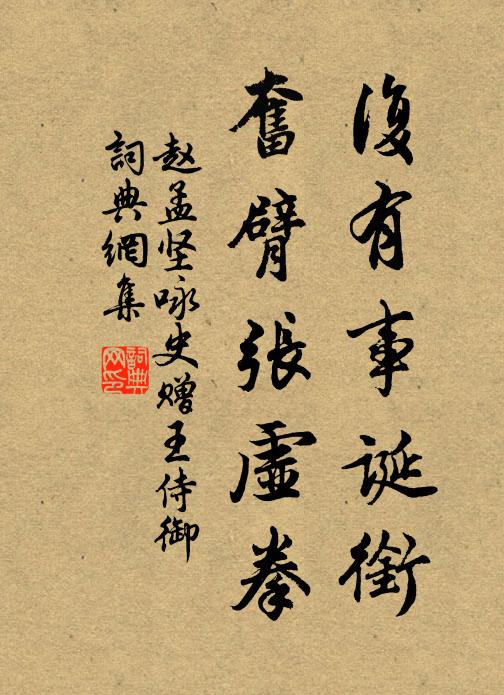 復有事誕銜
奮臂張虛拳
赵孟坚咏史赠王侍御
詞典網集
詞典网印